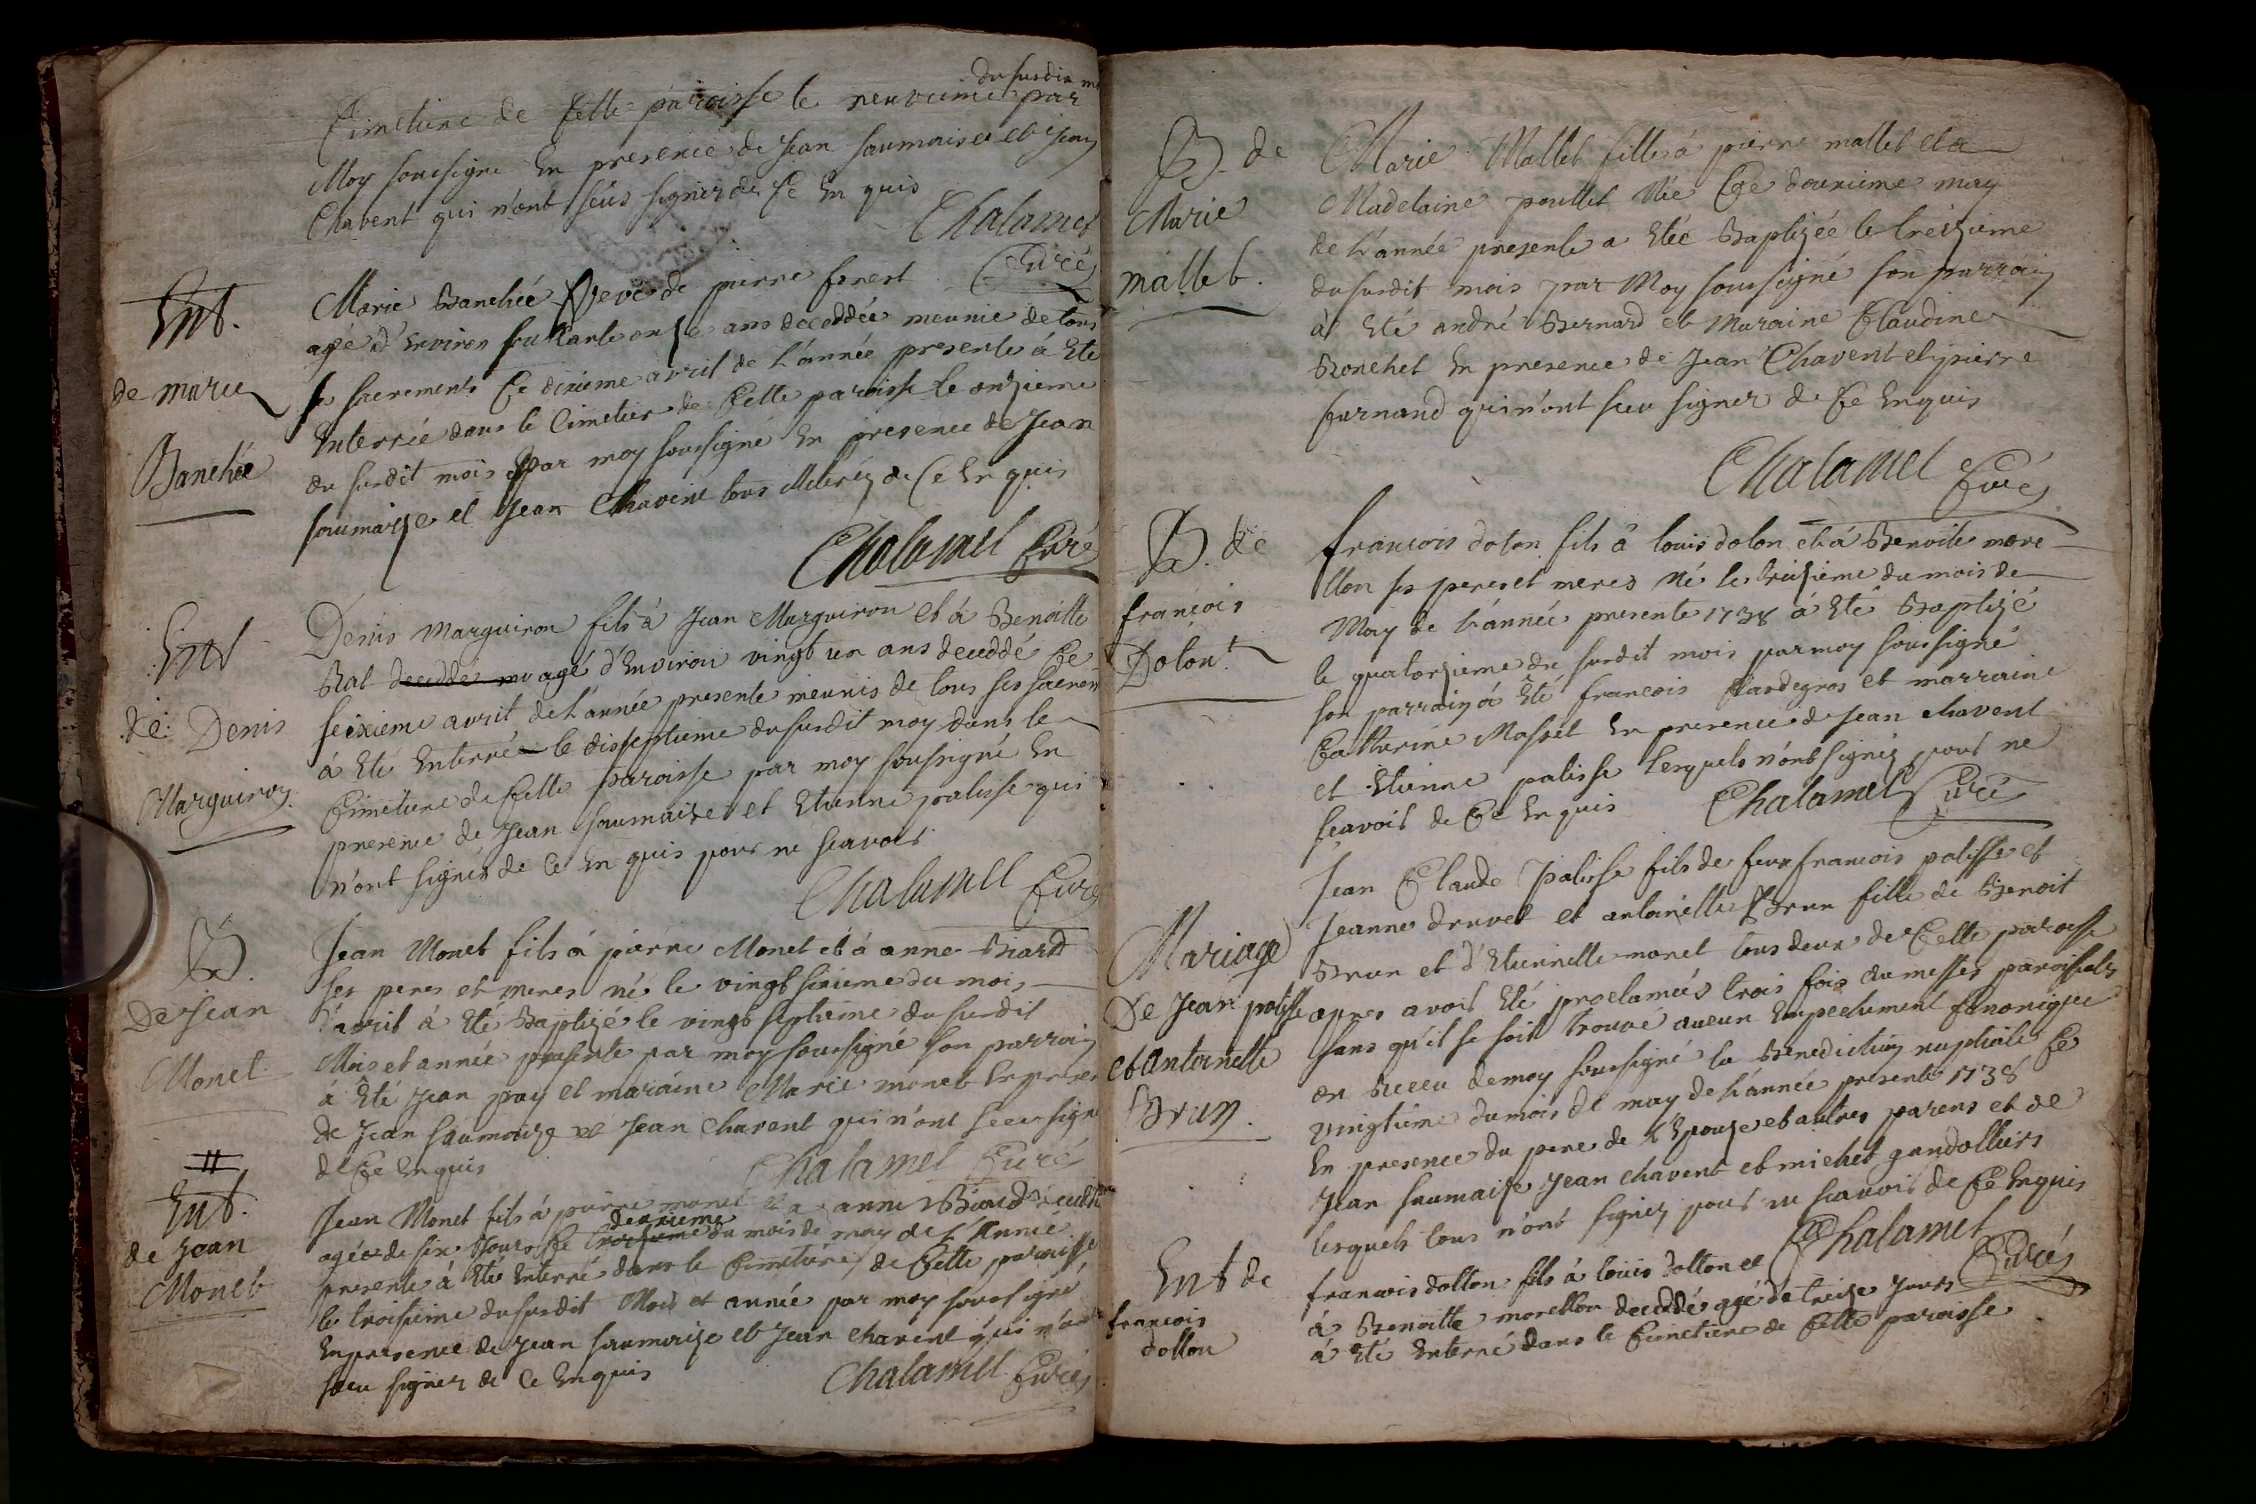 du susdit
Cimetiere de Cette paroisse le neuvieme par
Moy soussigné En presence de Jean saumaise et Jean
Chavent qui n'ont sçus signer de Ce En quis
Chalamel
Curé
Ent.
de marie
Banchée
Marie Banchée veve de pierre forest
agé d'Environ ans deceddée meunie de tous
ses sacrements Ce dixieme avril de L'année presente à Eté
Enterrée dans le Cimetier de Cette paroisse le onzieme
du susdit mois par moy soussigné En presence de Jean
saumaize et Jean Chavent tous illiterez de Ce En quis
Chalamel Curé
Ent
de Denis
Marguiron
Denis Marguiron fils à Jean Marguiron et à Benoitte
Rat decedde agé d'Environ vingt un ans deceddé Ce
seixieme avril de L'année presente meunis de tous ses sacrem
à Eté Enterré le disseptieme du susdit moy dans le
Cimetiere de Cette paroisse par moy soussigné En
presence de Jean saumaize et Etienne palisse qui
n'ont signés de Ce En quis pour ne scavoir
Chalamel Curé
B.
De Jean
Monet
Jean Monet fils à pierre Monet et à anne Biard
ses peres et meres né le vingt sixieme du mois
d'avril à Eté Baptizé le vingt septieme du susdit
Mois et année presente par moy soussigné son parrain
à Eté Jean pay et maraine Marie monet En presen
de Jean saumaize et Jean Chavent qui n'ont sceu signe
de Ce Enquis
Chalamel Curé
Ent.
de Jean
Monet
Jean Monet fils à pierre monet et a anne Biard decedé
deuxieme
agée de six Jours Ce troisieme du mois de may de L'Année
presente à Eté Enterré dans le Cimetiere de Cette paroisse
le troisieme du susdit Mois et année par moy soussigné
En presence de Jean saumaize et Jean Chavent qui n'ont
sceu signer de Ce Enquis
Chalamel Curé
B. de
Marie
mallet.
Marie Mallet fille à pierre mallet et a
Madelaine poullet Née Ce douzieme may
de L'année presente a Eteé Baptizée le treizieme
du susdit mois par Moy soussigné son parrain
à Eté andré Bernard et Maraine Claudine
Ronchet En presence de Jean Chavent et pierre
furnand qui n'ont sceu signer de Ce Enquis
Chalamel Curé
B. de
françois
Dolon
françois dolon fils à louis dolon et à Benoite more
llon ses peres et meres Né le treizieme du mois de
May de L'année presente 1738 à Eté Baptizé
le quatorzieme du susdit mois par moy soussigné
son parrain à Eté francois et marraine
Catherine Masset En presence de Jean chavent
et Etienne palisse lesquels n'ont signés pour ne
sçavoir de Ce Enquis
Chalamel Curé
Mariage
De Jean palisse
et Antoinette
Brun.
Jean Claude Palisse fils de feux francois palisse et
Jeanne druvet et antoinette Brun fille de Benoit
Brun et d'Etiennette monet tous deux de Cette paroisse
apres avoir Eté proclamés trois fois aux messes paroissiales
sans qu'il se soit trouvé aucun Empechement Canonique
on Receu de moy soussigné la Benediction nuptiale Ce
vingtieme du mois de may de L'année presente 1738
En presence du pere de L'Epouze et autres parens et de
Jean saumaize Jean chavent et michel gandolliers
lesquels tous n'ont signez pour ne scavoir de Ce Enquis
Chalamel
Curé
Ent de
francois
dollon
francois dollon fils à louis dollon et
à Benoitte morellon deceddé agé de treize Jours
à Eté Enterré dans le Cimetiere de Cette paroisse